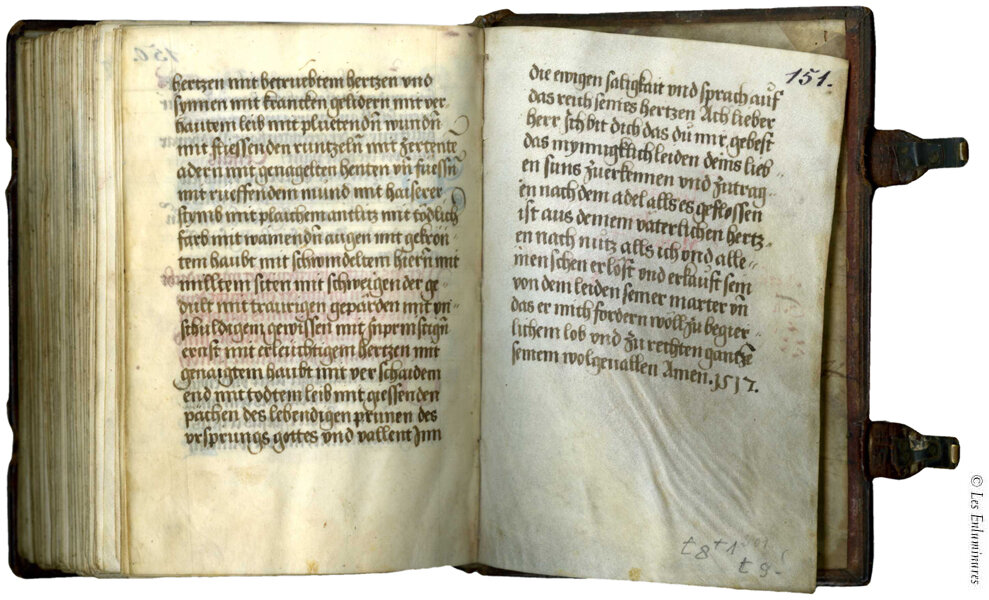 hertzen mit betruebtem hertzen vnd
synnen mit krancken gelidern mit ver
hautem leib mit pluetendn̄ wundn̄
mit fliessenden runtzeln̄ mit zertente
adern mit genagelten henten vn̄ fuessn̄
mit rueffendem mund mit haiserer
stymb mit plaichem antlitz mit tödlich
farb mit wainendn̄ augen mit gekrön⸗
tem haubt mit schwindeltem hiern̄ mit
milltem siten mit schweigender ge⸗
dult mit traurigen gepärden mit vn⸗
schuldigem gewissen mit jnprinstign̄
ernst mit erleuchtigem hertzen mit
genaigtem haubt mit verschaidem
end mit todtem leib mit giessenden
pächen des lebendigen prunen des
vrsprungs gottes vnd vallent Jnn
151.
die ewigen saligkait vnd sprach auf
das reich seines hertzen Ach lieber
herr Jch bit dich das dū mir gebest
das mynnigklich leiden deins lieb⸗
en suns zuerkennen vnd zutrag⸗
en nach dem adel alls es geflossen
ist aus deinem vaterlichen hertz⸗
en nach nutz alls ich vnd alle⸗
menschen erlöst vnd erkauft sein
von dem leiden seiner marter vn̄
das er mich fordern woll zu begier⸗
lichem lob vnd zu rechten gantze
seinem wolgeuallen Amen. 1517.
t 8 t 1
t 9
© Les Enluminures